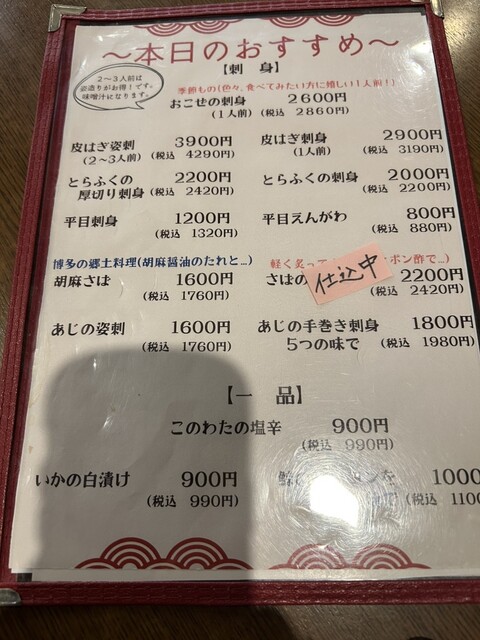 〜本日のおすすめ〜
【刺 身】
2〜3人前は
姿造りがお得！です。
味噌汁になります。
季節もの(色々、食べてみたい方に嬉しい1人前！)
おこぜの刺身 2600円
(1人前) (税込 2860円)
皮はぎ姿刺 3900円
(2〜3人前) (税込 4290円)
皮はぎ刺身 2900円
(1人前) (税込 3190円)
とらふくの 2200円
厚切り刺身 (税込 2420円)
とらふくの刺身 2000円
(税込 2200円)
平目刺身 1200円
(税込 1320円)
平目えんがわ 800円
(税込 880円)
博多の郷土料理(胡麻醤油のたれと…)
胡麻さば 1600円
(税込 1760円)
軽く炙って ポン酢で…)
さばの 2200円
(税込 2420円)
仕込中
あじの姿刺 1600円
(税込 1760円)
あじの手巻き刺身 1800円
5つの味で (税込 1980円)
【一 品】
このわたの塩辛 900円
(税込 990円)
いかの白漬け 900円
(税込 990円)
1000
(税込 1100